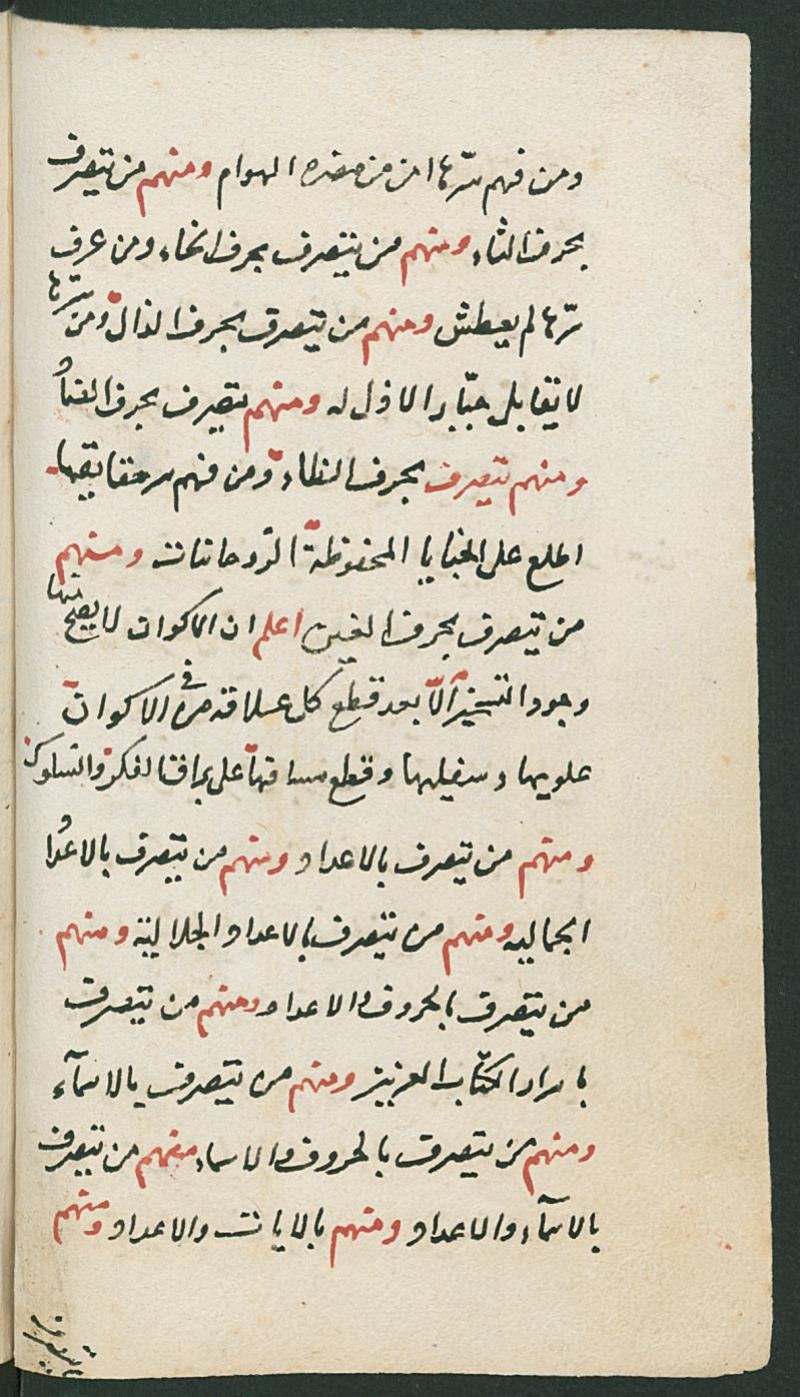 ومن فهم سرّها امن من مضره الهوام ومنهم من يتصرف
بحرف الثاء ومنهم من يتصرف بحرف الخاء ومن عرف
سرّها لم يعطش ومنهم من يتصرف بحرف الذال ومن سرّها
لا يقابل جبّار الا ذل له ومنهم يتصرف بحرف الضاد
ومنهم يتصرف بحرف الظاء ومن فهم سر حقايقها
اطلع على الخبايا المحفوظة الروحانيات ومنهم
من يتصرف بحرف الغين اعلم ان الاكوان لا يصح منها
وجود التسخير الّا بعد قطع كل علاقه من في الاكوان
علويها وسفليها وقطع مسافتها على الفكر والسلوك
ومنهم من يتصرف بالاعداد ومنهم من يتصرف بالاعداد
الجماليه ومنهم من يتصرف بالاعداد الجلالية ومنهم
من يتصرف بالحروف والاعداد ومنهم من يتصرف
باسرار الكتاب العزيز ومنهم من يتصرف بالاسمآء
ومنهم من يتصرف بالحروف والاسماء منهم من يتصرف
بالاسمآء والاعداد ومنهم بالايات والاعداد ومنهم